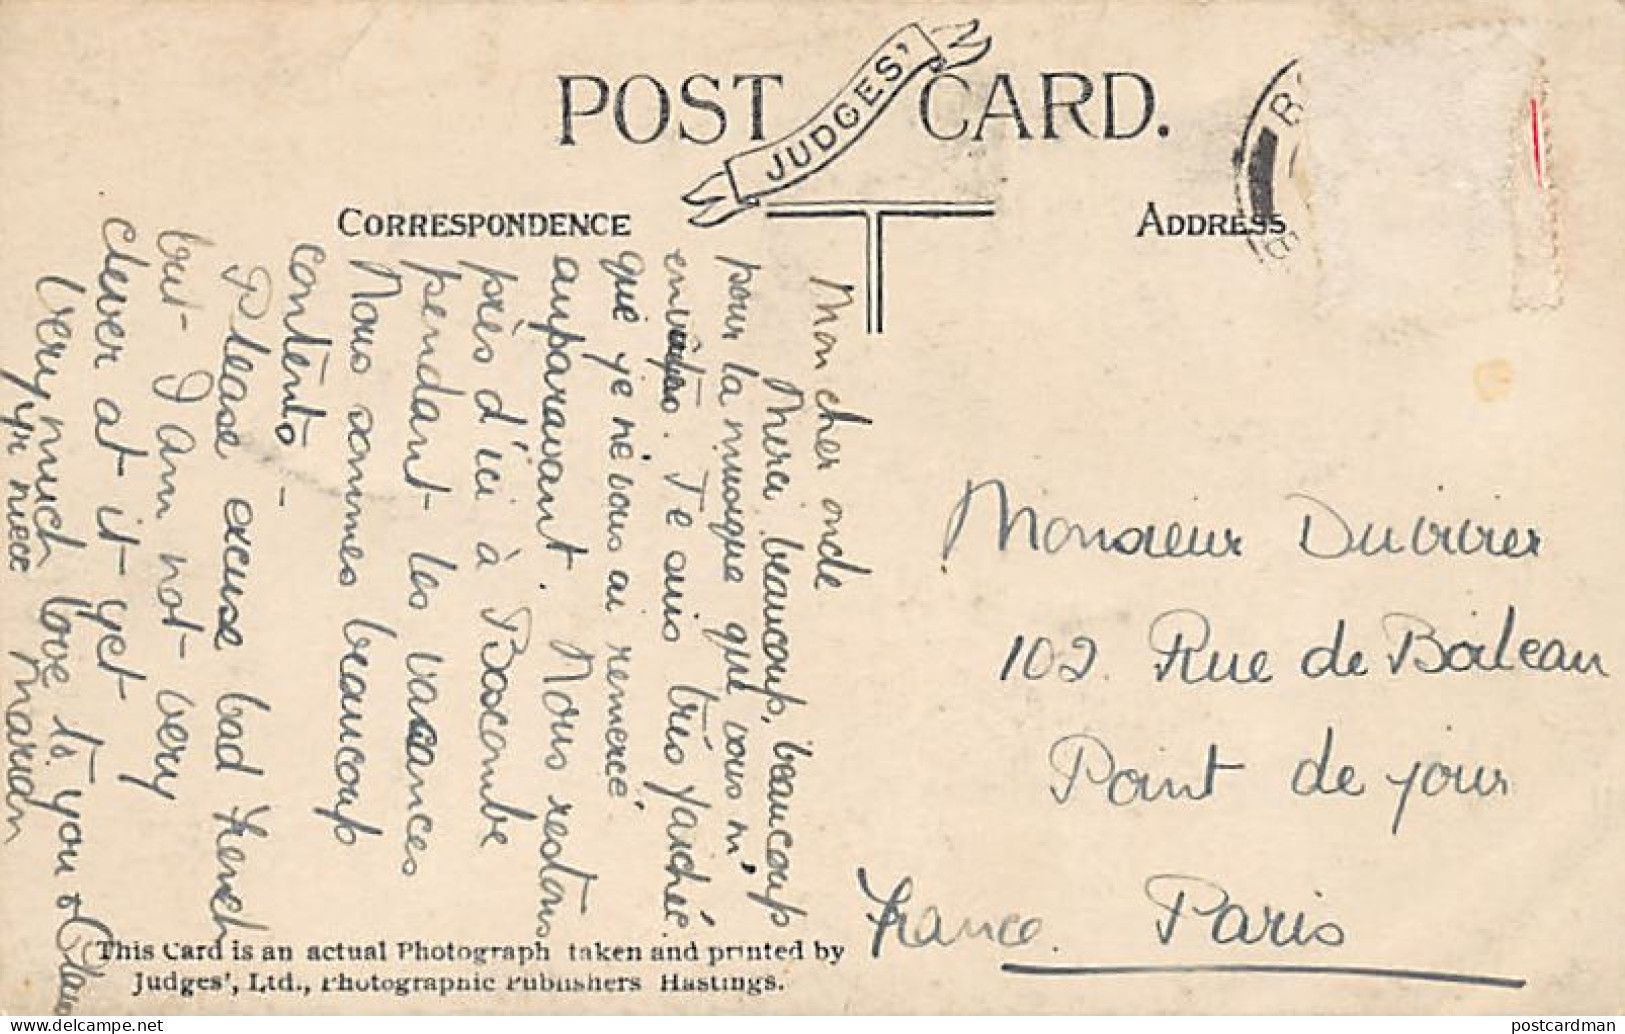 POST CARD.
JUDGES'
CORRESPONDENCE
ADDRESS
Mon cher oncle
Merci beaucoup, beaucoup
pour la musique que vous m'
envoyez. Je suis très fachée
que je ne vous ai remercé
auparavant. Nous restons
près d'ici à Boscombe
pendant les vacances
Nous sommes beaucoup
contents -
Please excuse bad French
but I am not very
clever at it yet
Very much love to you &
yr niece Marian
Monsieur Duvivier
102. Rue de Boileau
Point de jour
Paris
France.
This Card is an actual Photograph taken and printed by
Judges', Ltd., Photographic Publishers Hastings.
postcardman
delcampe.net